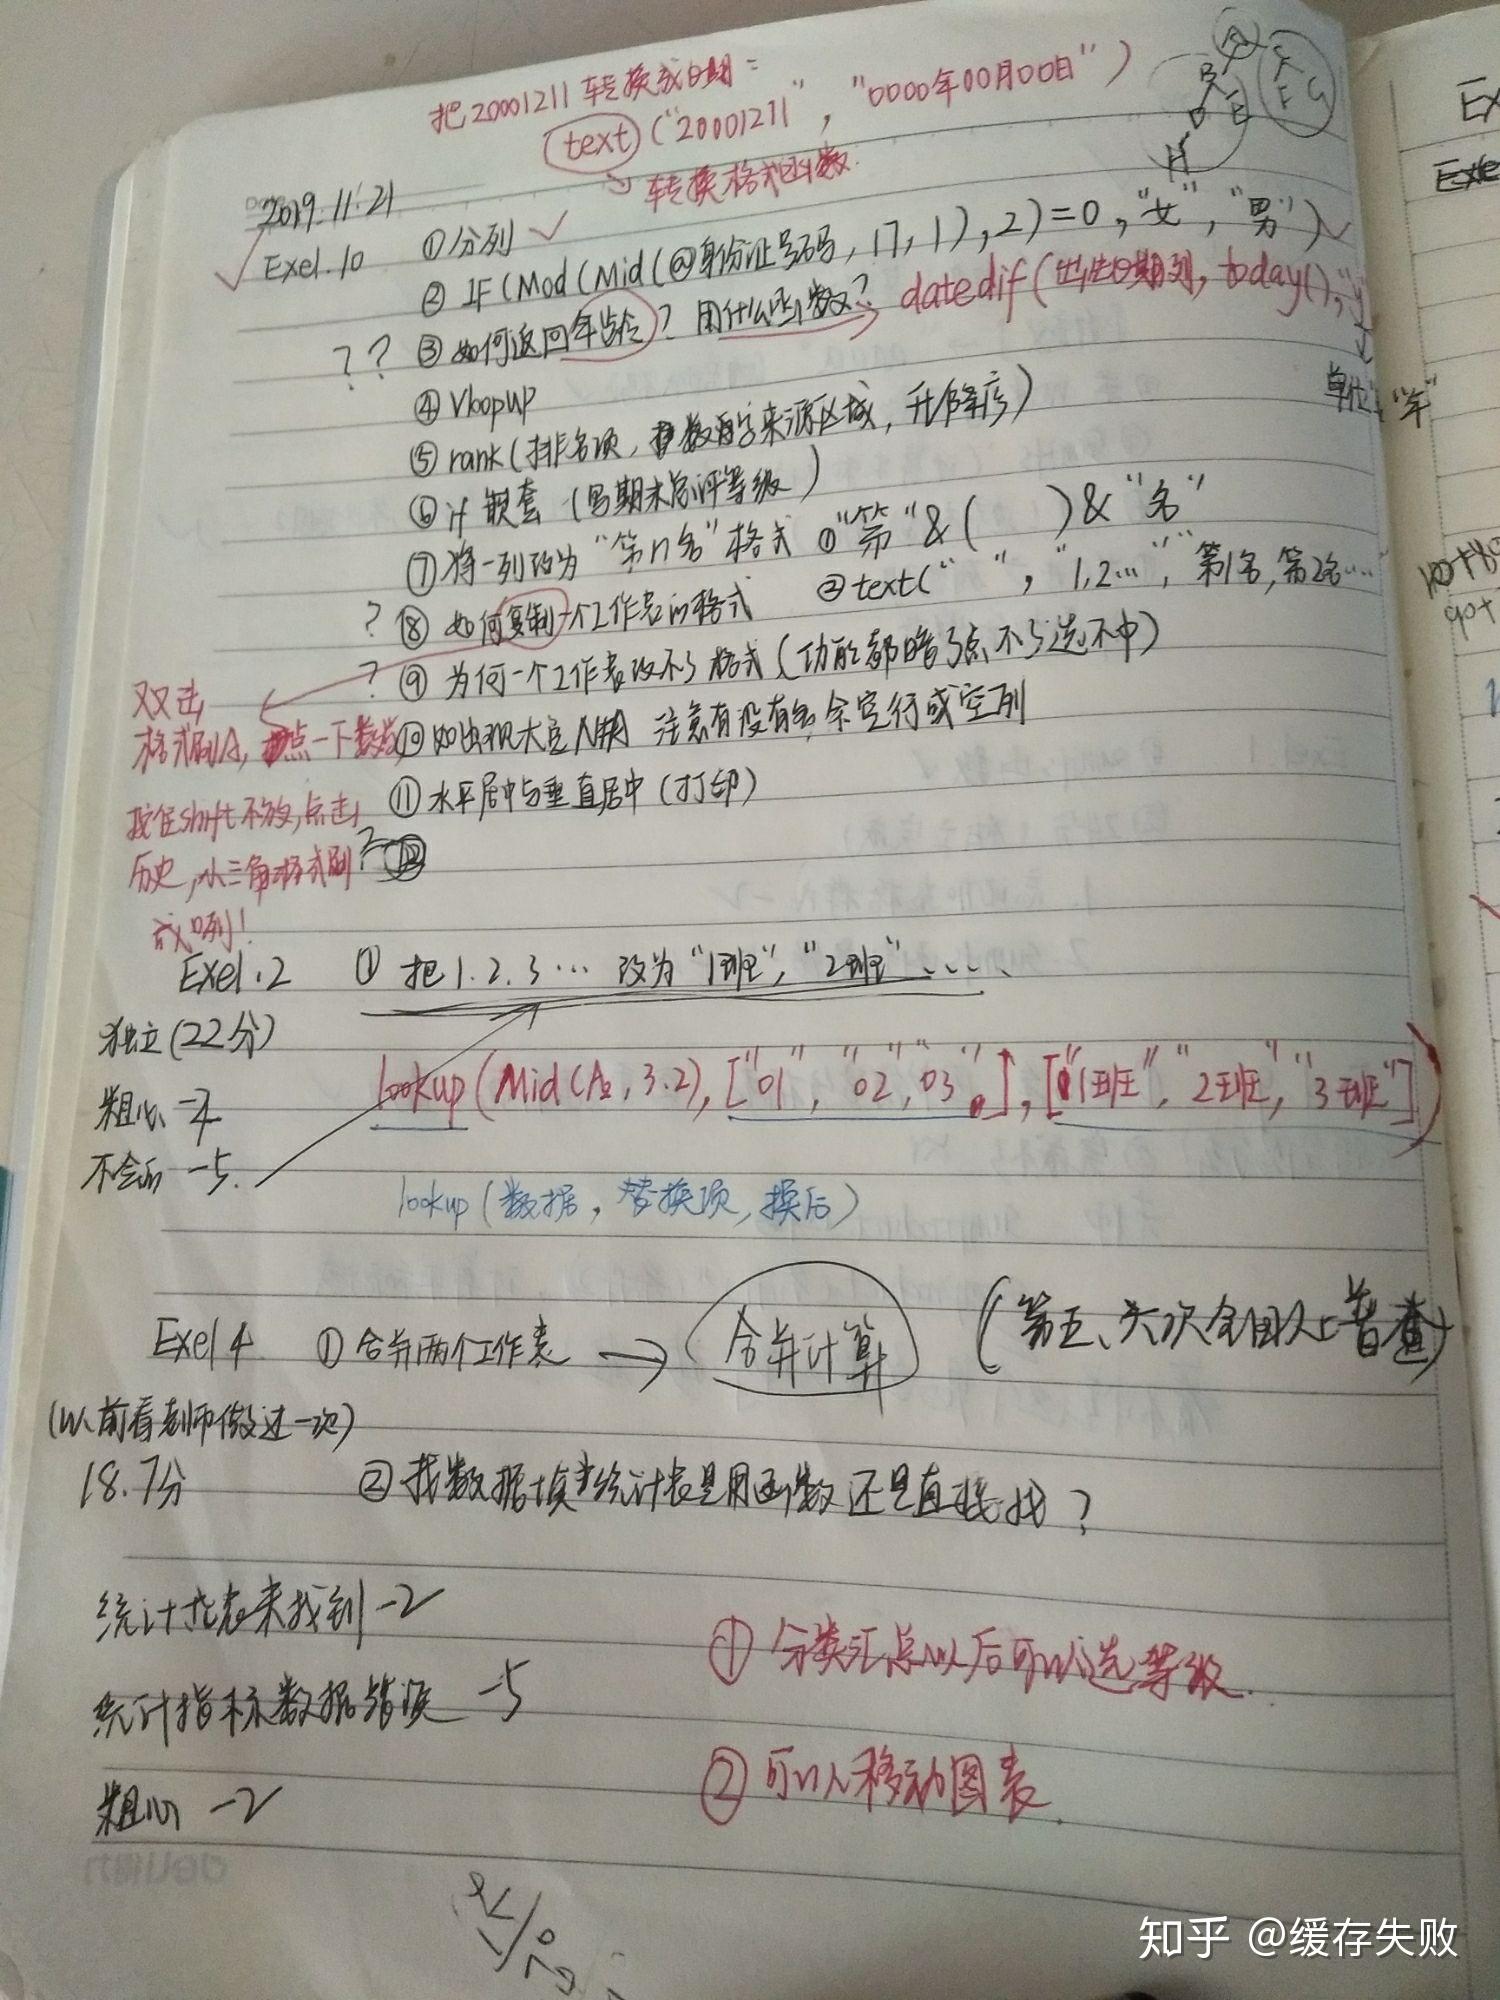 把20001211转换成日期：
text("20001211", "0000年00月00日")
转换格式函数.
2019.11.21
Exel.10 ①分列
②IF(Mod(Mid(@身份证号码,17,1),2)=0,"女","男")
??③如何返回年龄?用什么函数? datedif(出生日期列, today(),"y
单位"年"
④Vlookup
⑤rank(排名项, 数字来源区域, 升/降序)
⑥if 嵌套 (另期末总评等级)
⑦将一列改为"第n名"格式 ①"第"&( )&"名"
②text(" ", "1,2…", 第1名, 第2名…
?⑧如何复制一个工作表的格式
?⑨为何一个工作表改不了格式(功能都暗了点不了选不中)
双击
格式刷A, 点一下数
⑩如出现大量 注意有没有多余空行或空列
⑪水平居中与垂直居中(打印)
按住shift不放,点击
历史,小三角,格式刷
?⑫
成列!
Exel.2 ①把1.2.3…改为"1班","2班"....
独立(22分)
粗心
不会的 -5.
lookup(Mid(A2,3.2),["01","02","03"],["1班","2班","3班"])
lookup(数据,替换项,换后)
Exel 4 ①合并两个工作表→合并计算 (第五、六次全国人口普查)
(以前看老师做过一次)
18.7分 ②找数据填统计表是用函数还是直接找?
统计报表未找到 -2
统计指标数据错误 -5
粗心 -2
①分类汇总以后可以选等级.
②可以移动图表.
deli得力
知乎 @缓存失败